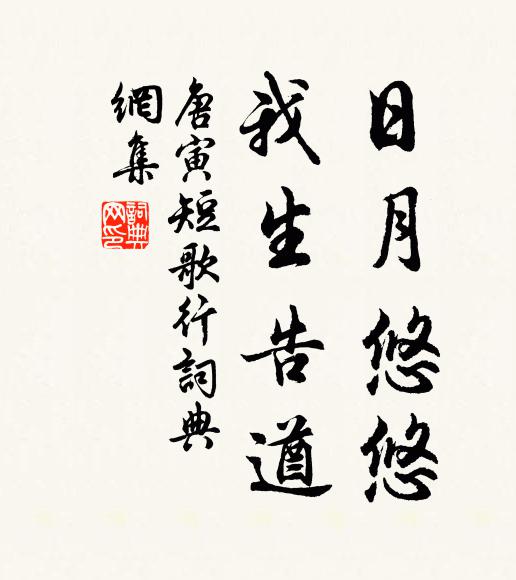 日月悠悠
我生告遒
唐寅短歌行詞典
網集
詞典
网印